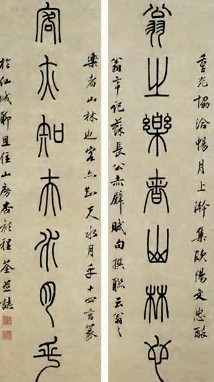 重光協洽暢月上澣集歐陽文忠醉
翁之樂者山林也
翁亭記蘇長公赤壁賦句撰聯云翁之
樂者山林也客亦知夫水月乎十四言篆
客亦知夫水月乎
於仙城聊且住山房 程荃並誌